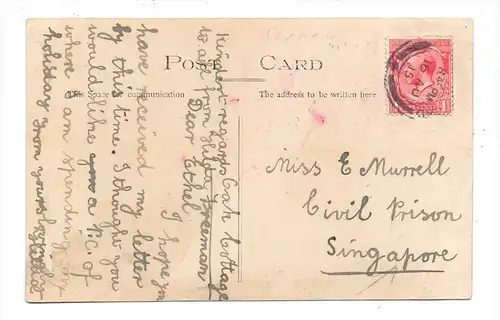 POST CARD
This Space for communication
The address to be written here
Oak Cottage
Dear Ethel
I hope you
have received my letter
by this time. I thought you
would like a P.C. of
where I am spending my
holiday from yours lovingly
Hilda
Kindest regards
to all from Hilda Freeman
Miss E Murrell
Civil Prison
Singapore
15